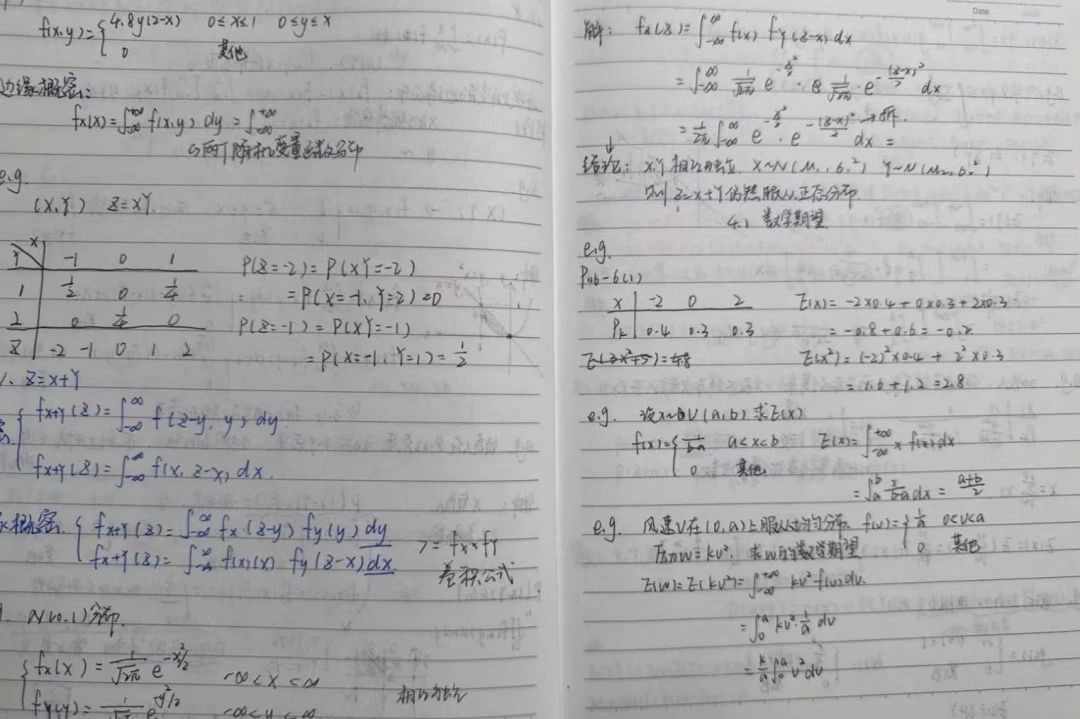 f(x,y)={4.8y(2-x) 0≤x≤1 0≤y≤x
0 其他
边缘概密:
fx(x)=∫-∞+∞ f(x,y) dy = ∫-∞+∞
两个随机变量函数分布
e.g.
(X,Y) Z=XY.
Y X -1 0 1
1 1/2 0 1/4
2 0 1/4 0
Z -2 -1 0 1 2
P(Z=-2)=P(XY=-2)
=P(X=-1,Y=2)=0
P(Z=-1)=P(XY=-1)
=P(X=-1,Y=1)=1/2
1. Z=X+Y
{fx+Y(z)=∫-∞∞ f(z-y, y) dy
fx+Y(z)=∫-∞∞ f(x, z-x) dx.
概密. {fx+Y(z)=∫-∞∞ fx(z-y) fy(y) dy
fx+Y(z)=∫-∞∞ f(x)(x) fy(z-x) dx.
= fx*fy
卷积公式
N(0,1)分布.
{fx(x)=1/√2π e^-x²/2 -∞<x<∞
fy(y)=1/√2π e^-y²/2 -∞<y<∞
相互独立
解: fx(z)=∫-∞∞ f(x) fy(z-x) dx
=∫-∞∞ 1/√2π e^-x²/2 · 1/√2π · e^-(z-x)²/2 dx
=1/2π ∫-∞∞ e^-x²/2 · e^-(z-x)²/2 dx =
→拆.
结论: X,Y相互独立 X~N(μ1,σ1²) Y~N(μ2,σ2²)
则 Z=X+Y仍然服从正态分布.
4.1 数学期望
e.g.
P96-6(1)
X -2 0 2
Pk 0.4 0.3 0.3
E(X)=-2×0.4+0×0.3+2×0.3
=-0.8+0.6=-0.2
E(3X²+5)=4.8
E(X²)=(-2)²×0.4 + 2²×0.3
=1.6+1.2=2.8
e.g. 设X~U(a,b) 求E(X)
f(x)={1/b-a a<x<b
0 其他
E(X)=∫-∞+∞ x f(x)dx
=∫ab x/b-a dx = a+b/2
e.g. 风速V在(0,a)上服从均匀分布. f(v)={1/a 0<v<a
0 其他
压力W=kV², 求W的数学期望
E(W)=E(kV²)=∫-∞+∞ kv² f(v)dv.
=∫0a kv²·1/a dv
=k/a ∫0a v² dv